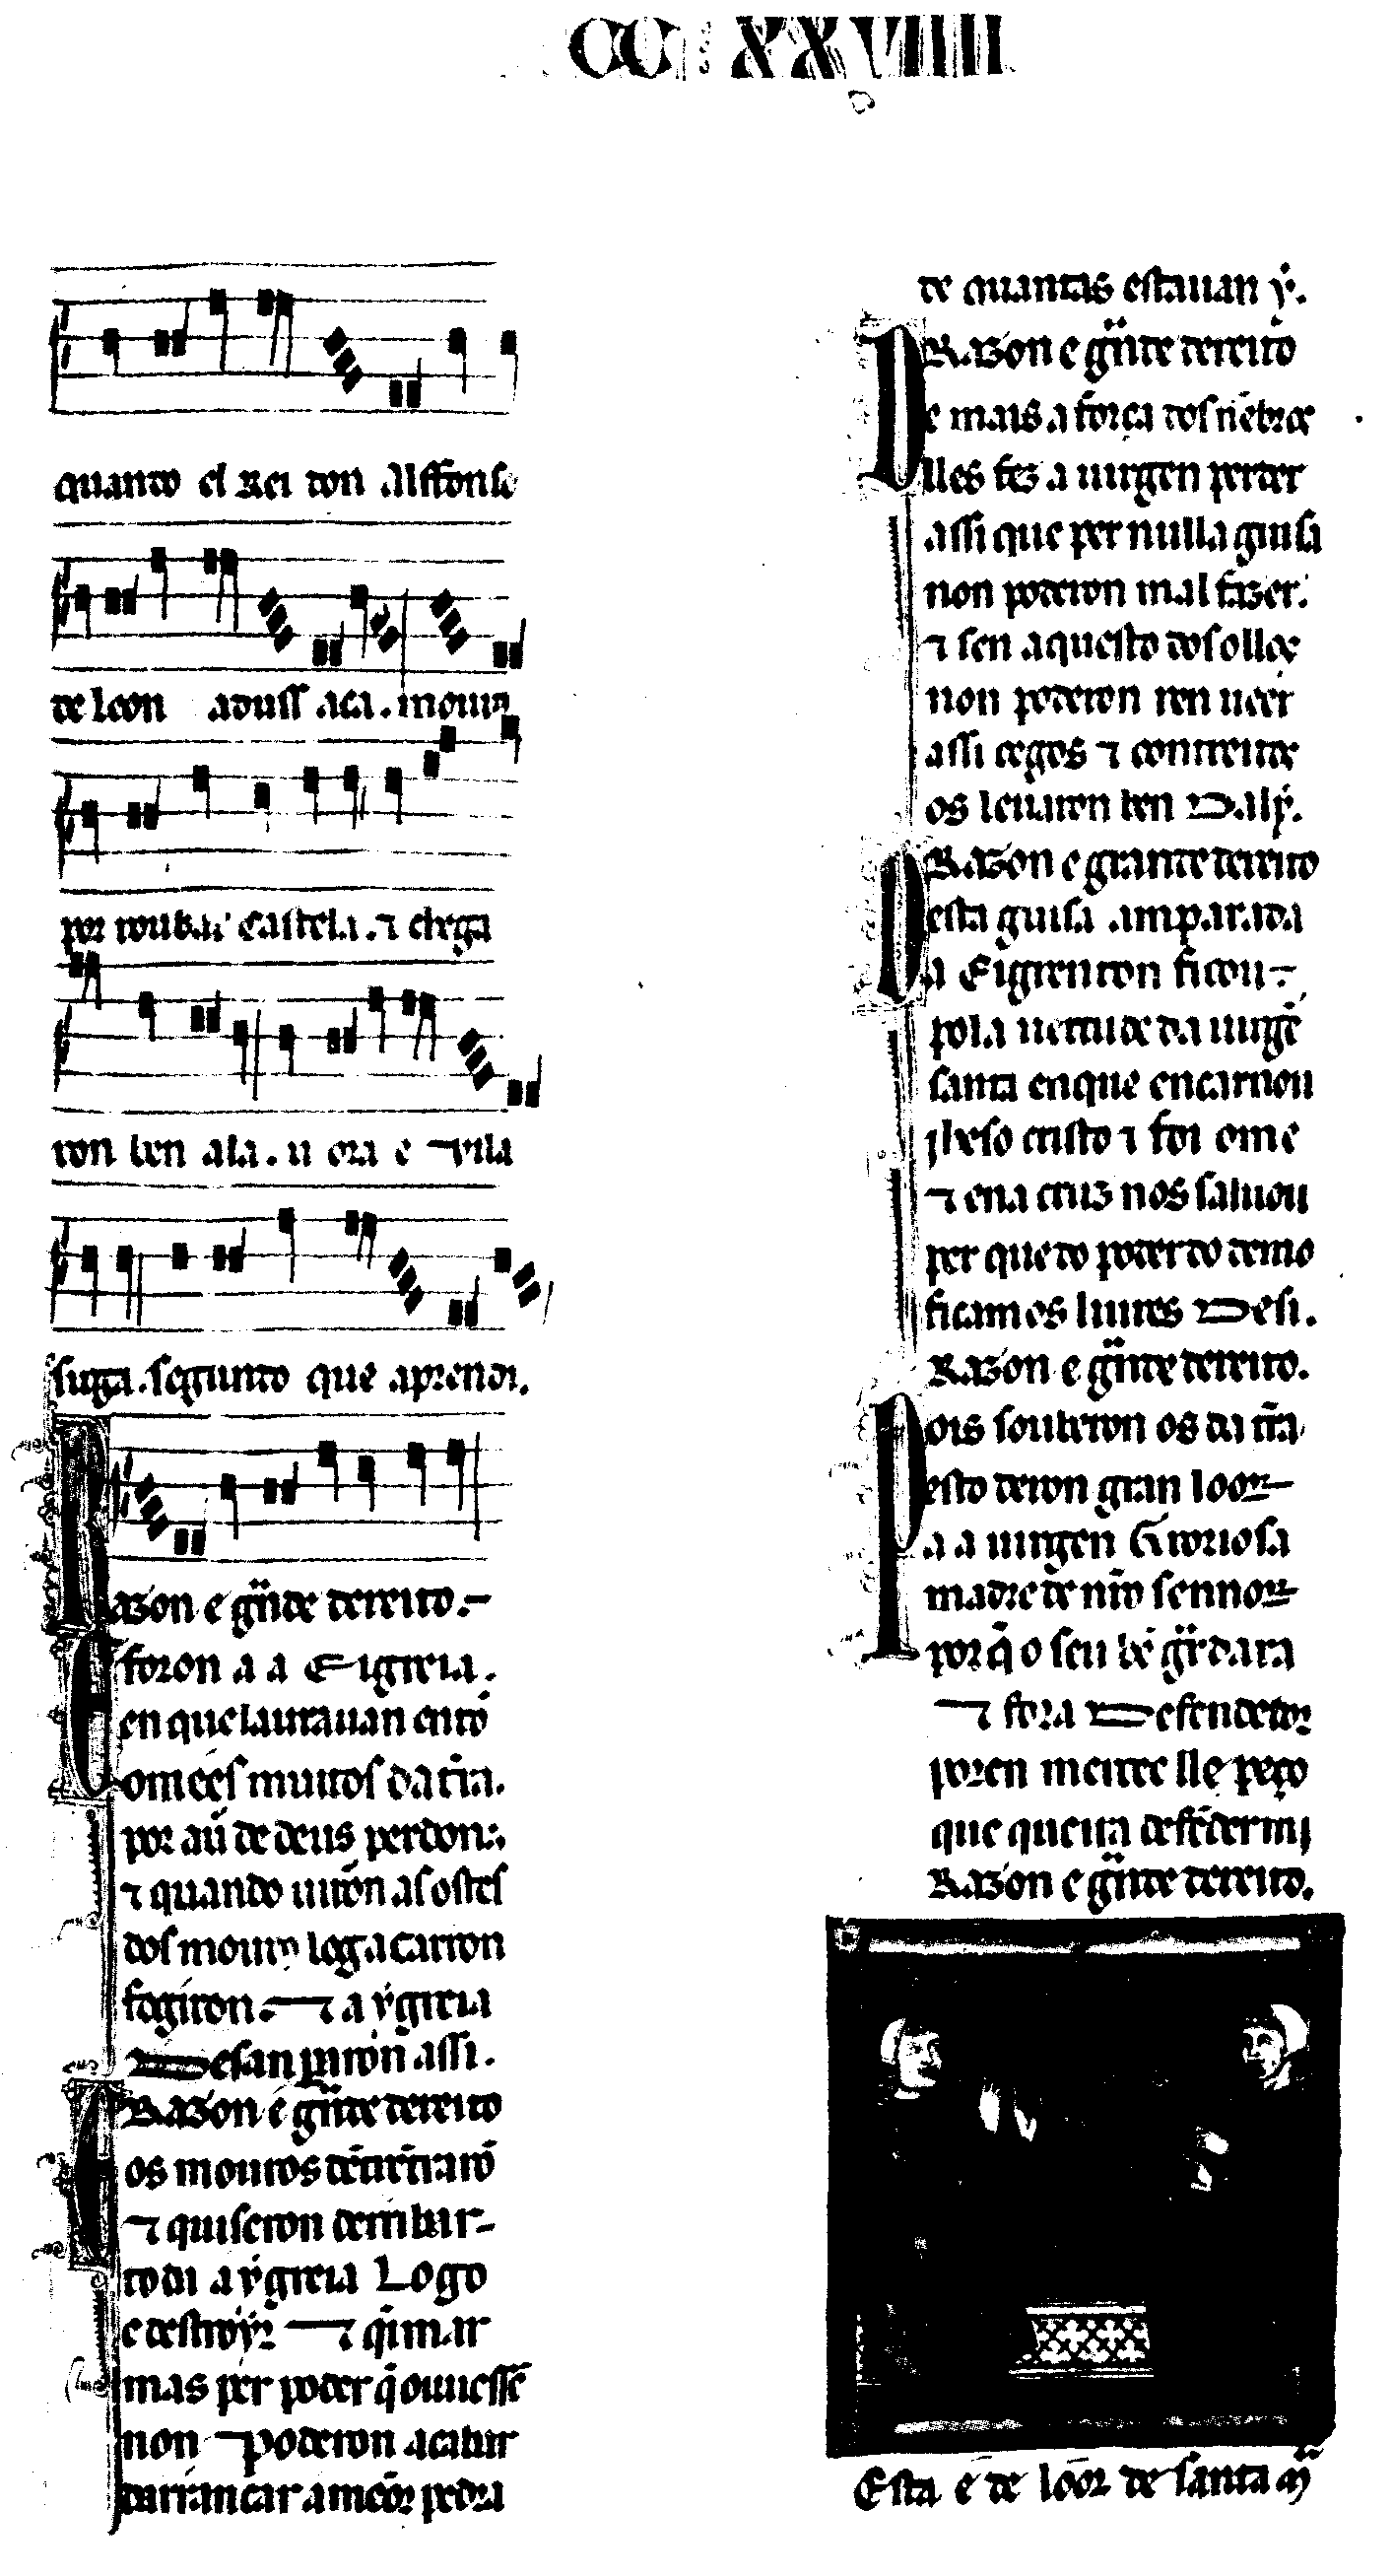 CC XXVIIII
quando el Rei don Alffonso
de leon aduss aca . mouros
por roubar Castela . ⁊ chega
ron ben ala . u ora e Vila
sirga . segundo que aprendi .
Razon e gñde dereito .
E foron a a Eigreia .
en que laurauan entõ
omẽes muitos da t̃ra .
por auer de deus perdon .
⁊ quando uirõn as ostes
dos mouros log acarron
fogiron . ⁊ a ygreia
Desanpararõn assi .
Razon e gñde dereito
E os mouros dentr entrarõ
⁊ quiseron derribar
toda a ygreia Logo
e destroyr ⁊ q̃imar
mas per poder q̃ ouuessẽ
non Poderon acabar
darrancar a mẽor pedra
de quantas estauan y .
Razon e gñde dereito
De mais a força dos nẽbros
lles fez a uirgen perder
assi que per nulla guisa
non poderon mal fazer .
⁊ sen aquesto dos ollos
non poderon ren ueer
assi cegos ⁊ contreitos
os leuaron ben Daly .
Razon e grande dereito
Desta guisa amparada
a Eigreia enton ficou
pola uertude da uirgẽ
santa en que encarnou
jheso cristo ⁊ foi ome
⁊ ena cruz nos saluou
per que do poder do demo
ficamos liures Desi .
Razon e gñde dereito .
Pois souberon os da t̃ra
esto deron gran loor
a a uirgen Groriosa
madre de nr̃o sennor
por q̃ o seu bẽ gũdara
⁊ fora Defendedor
poren mente lle peço
que queira defẽder mj
Razon e gñde dereito .
Esta é de loor de santa Mª